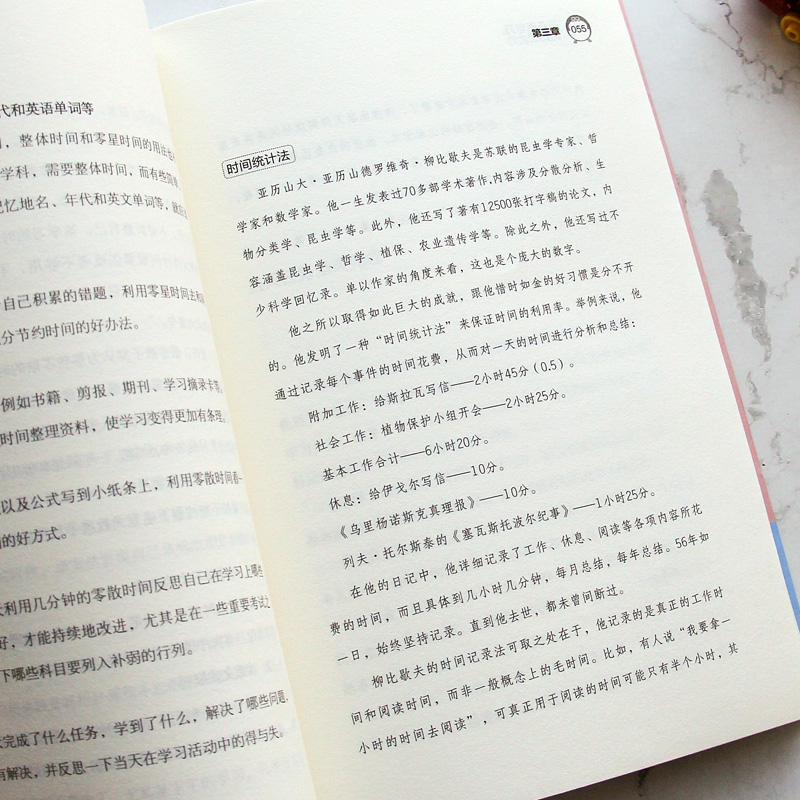 代和英语单词等
，整体时间和零星时间的用法也
学科，需要整体时间，而有些简单
记忆地名、年代和英文单词等，就应
自己积累的错题，利用零星时间去和
分节约时间的好办法。
例如书籍、剪报、期刊、学习摘录卡等
时间整理资料，使学习变得更加有条理。
以及公式写到小纸条上，利用零散时间看一
的好方式。
利用几分钟的零散时间反思自己在学习上哪些
好，才能持续地改进，尤其是在一些重要考试之
下哪些科目要列入补弱的行列。
完成了什么任务，学到了什么，解决了哪些问题，
有解决，并反思一下当天在学习活动中的得与失。
第三章 055
时间统计法
亚历山大·亚历山德罗维奇·柳比歇夫是苏联的昆虫学专家、哲
学家和数学家。他一生发表过70多部学术著作，内容涉及分散分析、生
物分类学、昆虫学等。此外，他还写了著有12500张打字稿的论文，内
容涵盖昆虫学、哲学、植保、农业遗传学等。除此之外，他还写过不
少科学回忆录。单以作家的角度来看，这也是个庞大的数字。
他之所以取得如此巨大的成就，跟他惜时如金的好习惯是分不开
的。他发明了一种“时间统计法”来保证时间的利用率。举例来说，他
通过记录每个事件的时间花费，从而对一天的时间进行分析和总结：
附加工作：给斯拉瓦写信——2小时45分（0.5）。
社会工作：植物保护小组开会——2小时25分。
基本工作合计——6小时20分。
休息：给伊戈尔写信——10分。
《乌里杨诺斯克真理报》——10分。
列夫·托尔斯泰的《塞瓦斯托波尔纪事》——1小时25分。
在他的日记中，他详细记录了工作、休息、阅读等各项内容所花
费的时间，而且具体到几小时几分钟，每月总结，每年总结。56年如
一日，始终坚持记录。直到他去世，都未曾间断过。
柳比歇夫的时间记录法可取之处在于，他记录的是真正的工作时
间和阅读时间，而非一般概念上的毛时间。比如，有人说“我要拿一
小时的时间去阅读”，可真正用于阅读的时间可能只有半个小时，其